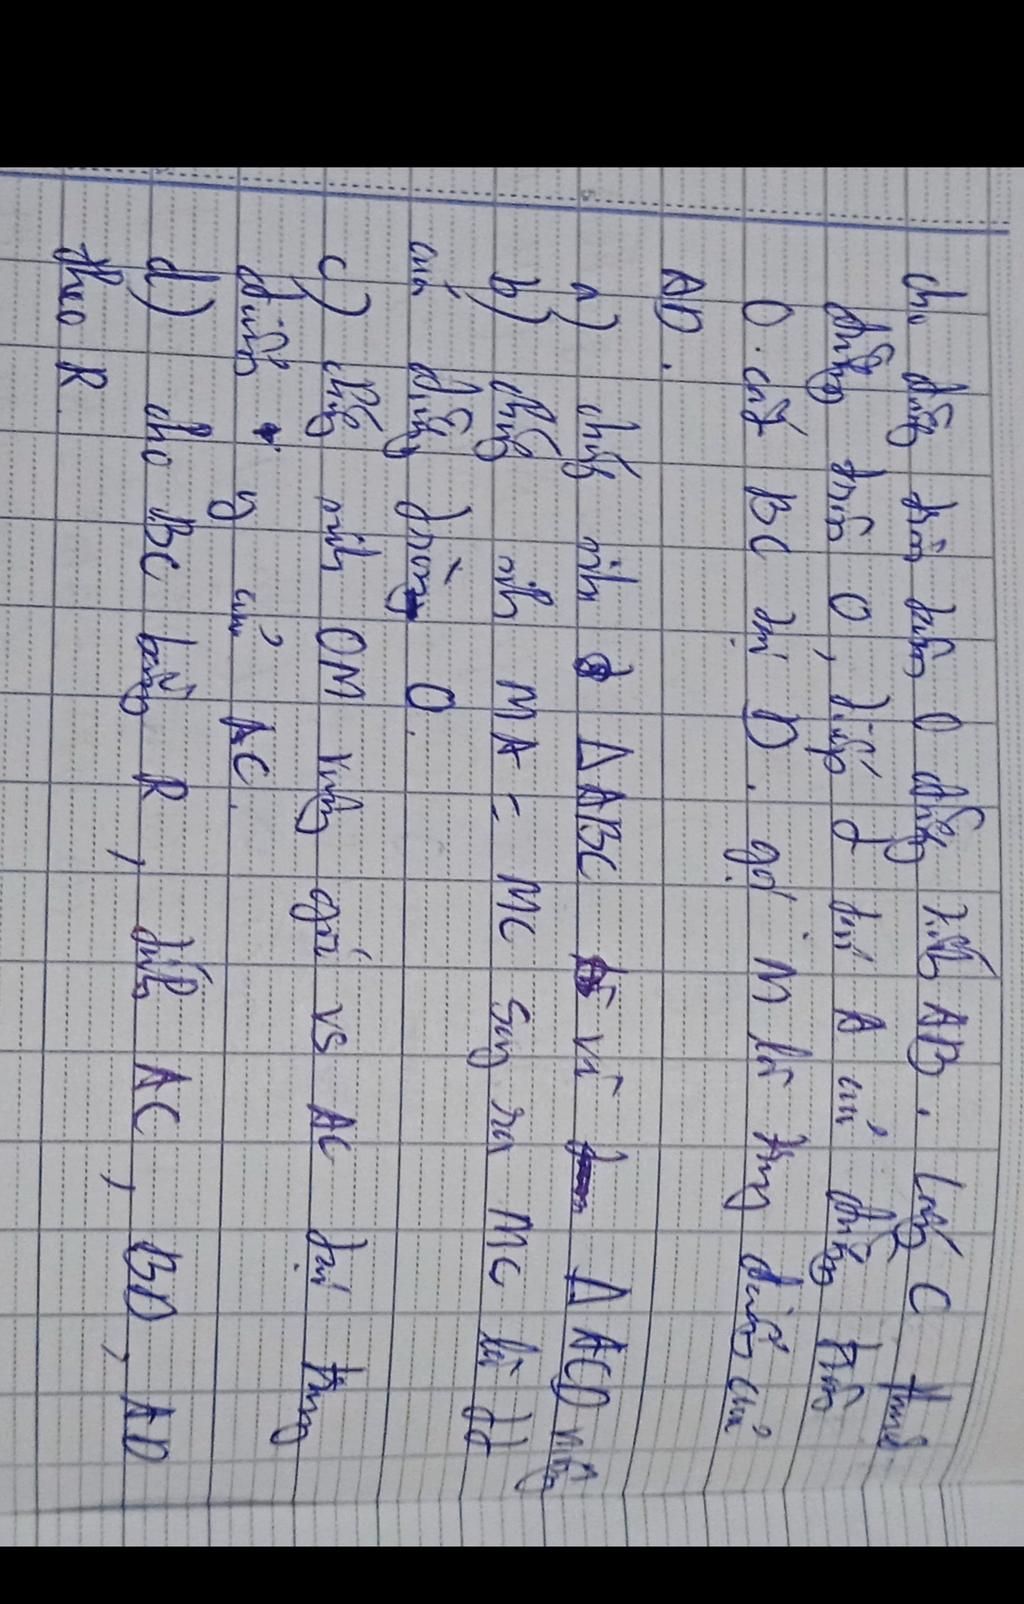 cho đường tròn tâm O đường kính AB. Lấy C thuộc
đường tròn O, tiếp d tại A của đường tròn
O. cắt BC tại D. gọi M là trung điểm của
AD.
a) chứng minh ΔABC và ΔACD vuông
b) chứng minh MA = MC suy ra MC là tt
của đường tròn O.
c) chứng minh OM vuông góc vs AC tại trung
điểm y của AC.
d) cho BC bằng R, tính AC, BD, AD
theo R.